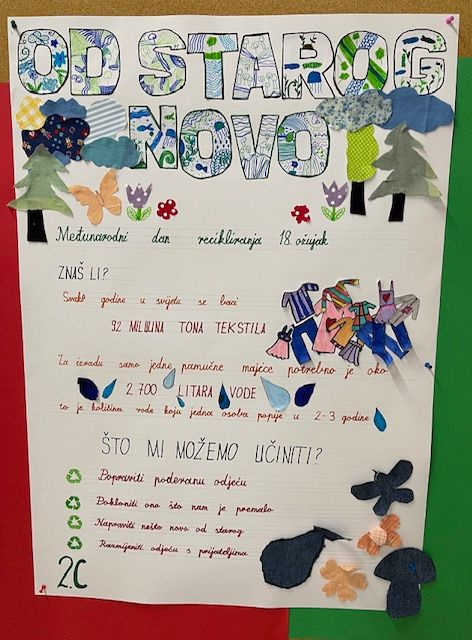 OD STAROG
NOVO
Međunarodni dan recikliranja 18. ožujak
ZNAŠ LI?
Svake godine u svijetu se baci
92 MILIJUNA TONA TEKSTILA
Za izradu samo jedne pamučne majice potrebno je oko
2 700 LITARA VODE
to je količina vode koju jedna osoba popije u 2-3 godine
ŠTO MI MOŽEMO UČINITI?
Popraviti poderanu odjeću
Pokloniti ono što nam je premalo
Napraviti nešto novo od starog
Razmijeniti odjeću s prijateljima
2.C